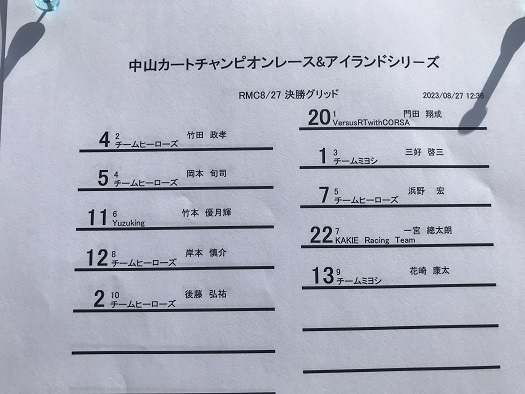 中山カートチャンピオンレース&アイランドシリーズ
RMC8/27 決勝グリッド
2023/08/27 12:36
20 1 門田 翔成
VersusRTwithCORSA
4 2 竹田 政孝
チームヒーローズ
1 3 三好 啓三
チームミヨシ
5 4 岡本 旬司
チームヒーローズ
7 5 浜野 宏
チームヒーローズ
11 6 竹本 優月輝
Yuzuking
22 7 一宮 總太朗
KAKIE Racing Team
12 8 岸本 慎介
チームヒーローズ
13 9 花崎 康太
チームミヨシ
2 10 後藤 弘祐
チームヒーローズ